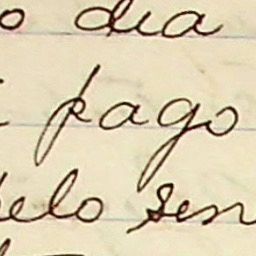 o dia
pago
pelo sen